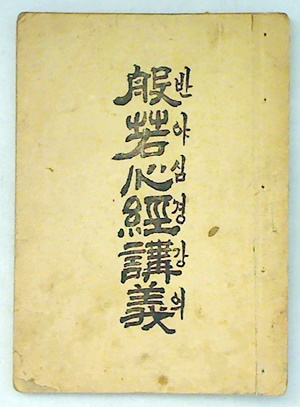 般若心經講義
반야심경강의